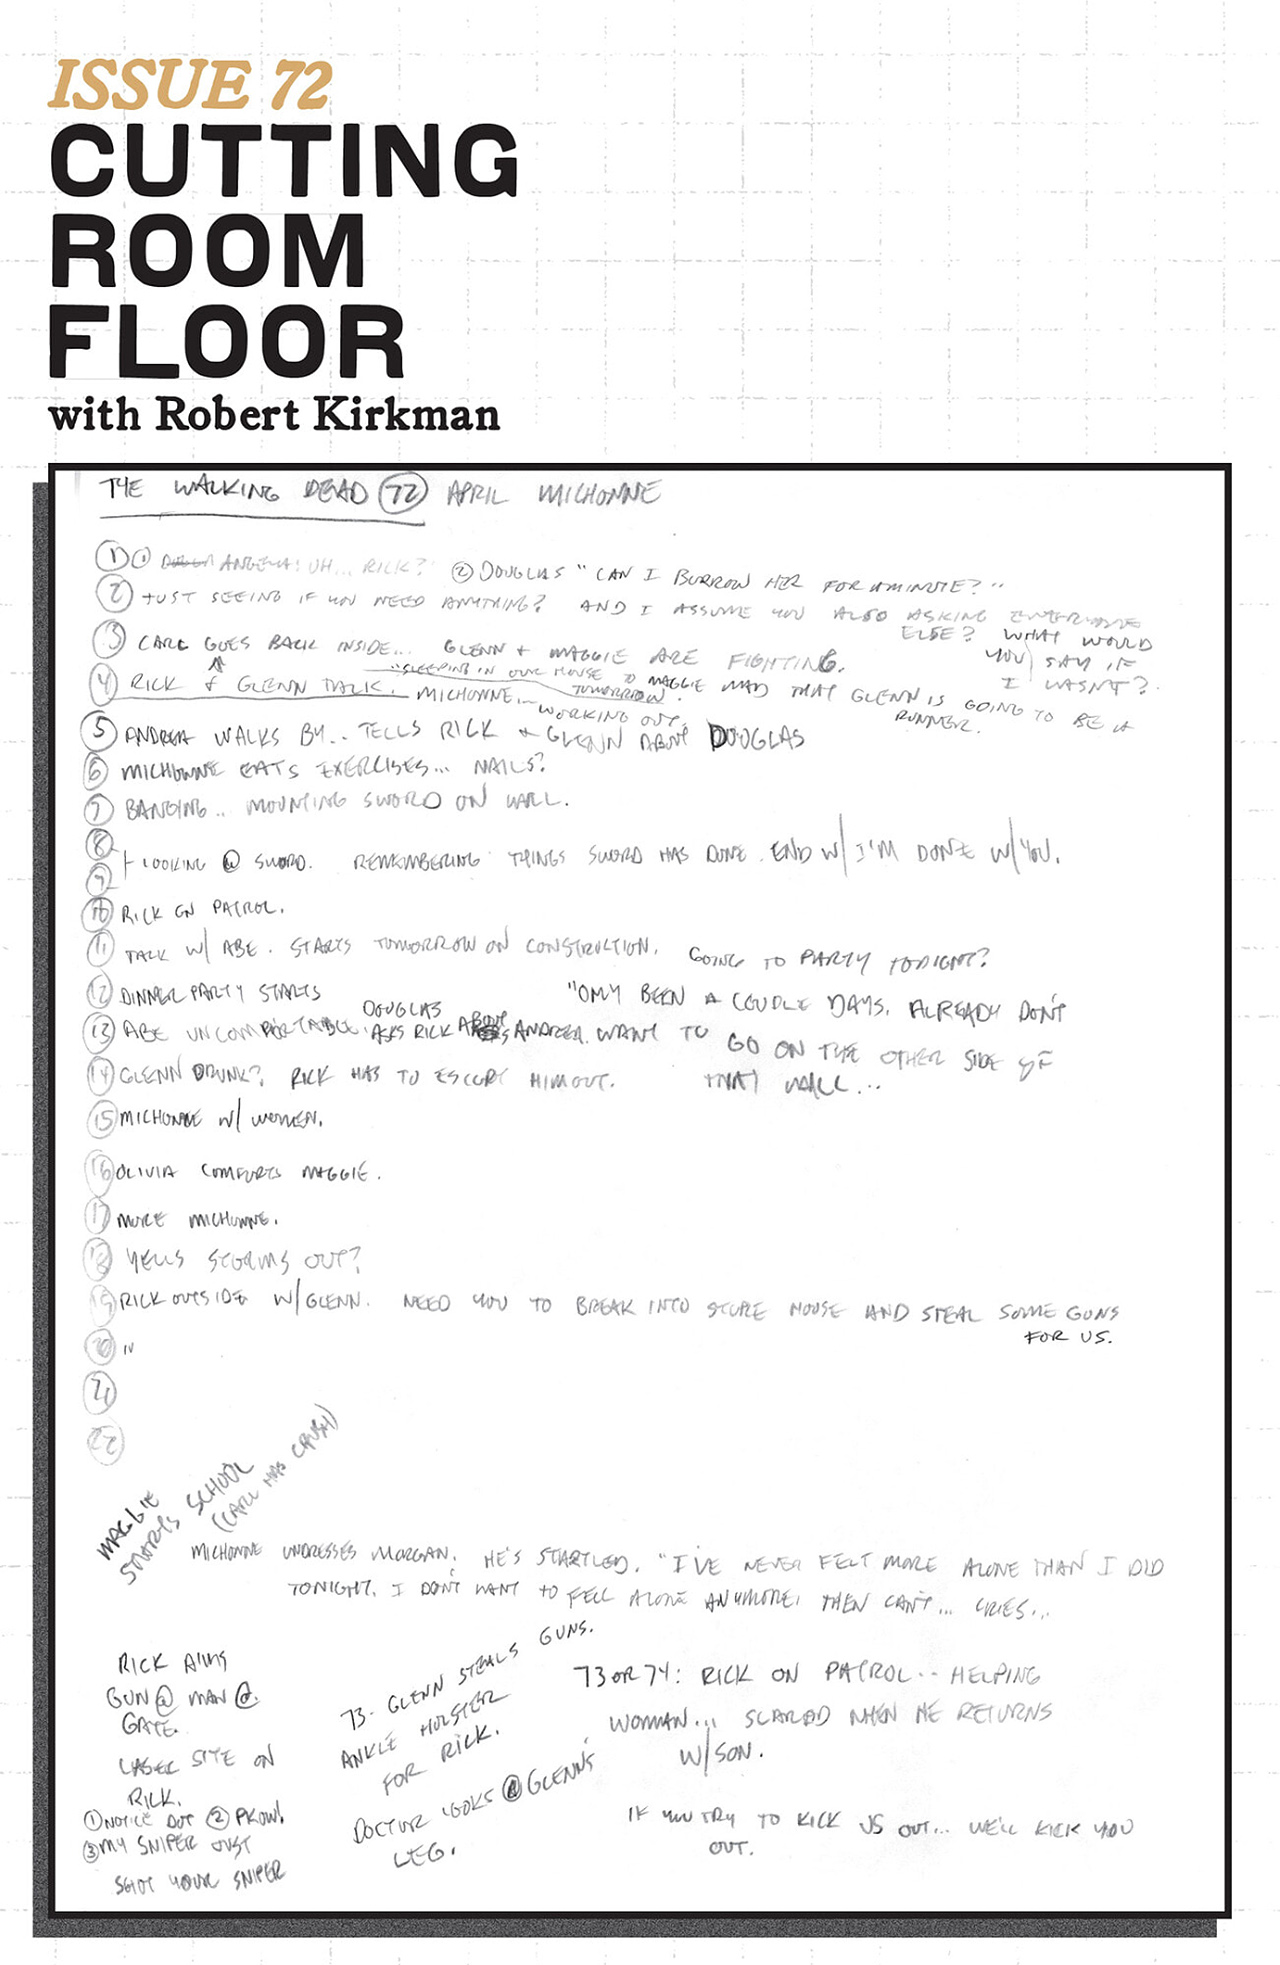 ISSUE 72
CUTTING
ROOM
FLOOR
with Robert Kirkman
THE WALKING DEAD 72 APRIL MICHONNE
1 1 ANGELA: UH... RICK? 2 DOUGLAS "CAN I BURROW HER FOR A MINUTE?"
2 JUST SEEING IF YOU NEED ANYTHING? AND I ASSUME YOU ALSO ASKING EVERYONE
ELSE? WHAT WOULD
YOU SAY IF
I WASN'T?
3 CARL GOES BACK INSIDE... GLENN + MAGGIE ARE FIGHTING.
"SLEEPING IN OUR HOUSE
TOMORROW.
4 RICK & GLENN TALK. MICHONNE... WORKING OUT.
MAGGIE MAD THAT GLENN IS GOING TO BE A
RUNNER.
5 ANDREA WALKS BY.. TELLS RICK + GLENN ABOUT DOUGLAS
6 MICHONNE EATS EXERCISES... NAILS?
7 BANGING.. MOUNTING SWORD ON WALL.
8
9 LOOKING @ SWORD. REMEMBERING THINGS SWORD HAS DONE. END W/ I'M DONE W/ YOU.
10 RICK ON PATROL.
11 TALK W/ ABE. STARTS TOMORROW ON CONSTRUCTION. GOING TO PARTY TONIGHT?
12 DINNER PARTY STARTS
13 ABE UNCOMFORTABLE. DOUGLAS ASKS RICK ABOUT ANDREA.
"ONLY BEEN A COUPLE DAYS. ALREADY DON'T
WANT TO GO ON THE OTHER SIDE OF
THAT WALL...
14 GLENN DRUNK? RICK HAS TO ESCORT HIM OUT.
15 MICHONNE W/ WOMEN.
16 OLIVIA COMFORTS MAGGIE.
17 MORE MICHONNE.
18 YELLS STORMS OUT?
19 RICK OUTSIDE W/ GLENN. NEED YOU TO BREAK INTO STORE HOUSE AND STEAL SOME GUNS
FOR US.
20 "
21
22
MAGGIE
STARTS SCHOOL
(CARL HAS CRUSH)
MICHONNE UNDRESSES MORGAN. HE'S STARTLED. "I'VE NEVER FELT MORE ALONE THAN I DID
TONIGHT. I DON'T WANT TO FEEL ALONE ANYMORE. THEN CAN'T... CRIES...
RICK AIMS
GUN @ MAN @
GATE.
LASER SITE ON
RICK.
1 NOTICE DOT 2 PKOW!
3 MY SNIPER JUST
SHOT YOUR SNIPER
73- GLENN STEALS GUNS.
ANKLE HOLSTER
FOR RICK.
DOCTOR LOOKS @ GLENN'S
LEG.
73 OR 74: RICK ON PATROL.. HELPING
WOMAN... SCARED WHEN HE RETURNS
W/ SON.
IF YOU TRY TO KICK US OUT... WE'LL KICK YOU
OUT.